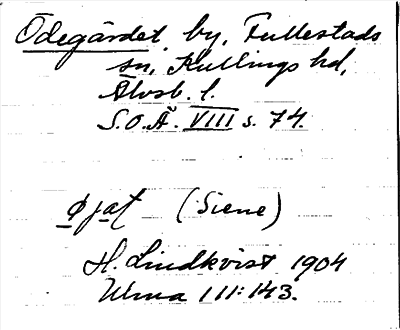 Ödegärdet by, Fullestads
sn, Kullings hd,
Älvsb. l.
S.O.Ä. VIII s. 74.
øjat (Siene)
H. Lindkvist 1904
Uma III:143.